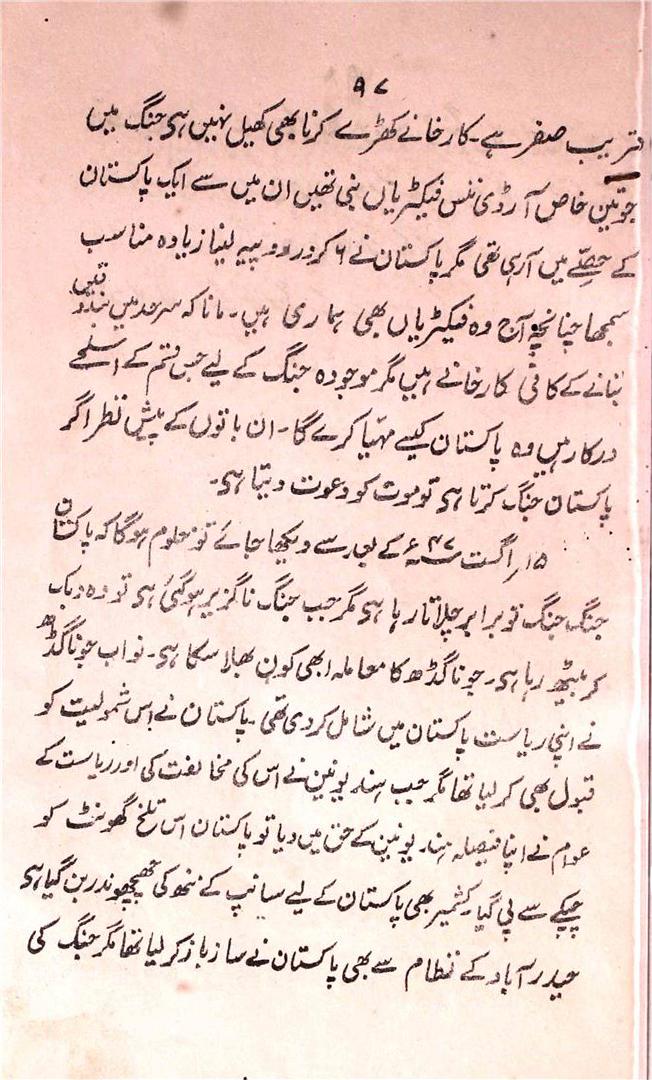 ۹۷
قریب صفر ہے۔ کارخانے کھڑے کرنا بھی کھیل نہیں ہی جنگ میں
جو تین خاص آرڈی ننس فیکٹریاں بنی تھیں ان میں سے ایک پاکستان
کے حصّے میں آرہی تھی مگر پاکستان نے ۶ کرور روپیہ لینا زیادہ مناسب
سمجھا چنانچہ آج وہ فیکٹریاں بھی ہماری ہیں۔ مانا کہ سرحد میں بندوقیں
بنانے کے کافی کارخانے ہیں مگر موجودہ جنگ کے لیے جس قسم کے اسلحے
درکار ہیں وہ پاکستان کیسے مہیّا کرے گا۔ ان باتوں کے پیش نظر اگر
پاکستان جنگ کرتا ہی تو موت کو دعوت دیتا ہی۔
۱۵ اگست ۴۷ء کے بعد سے دیکھا جائے تو معلوم ہوگا کہ پاکستان
جنگ جنگ تو برابر چلاتا رہا ہی مگر جب جنگ ناگزیر ہوگئی ہی تو وہ دبک
کر بیٹھ رہا ہی۔ جوناگڈھ کا معاملہ ابھی کون بھلا سکا ہی۔ نواب جوناگڈھ
نے اپنی ریاست پاکستان میں شامل کردی تھی۔ پاکستان نے اس شمولیت کو
قبول بھی کر لیا تھا مگر جب ہند یونین نے اس کی مخالفت کی اور ریاست کے
عوام نے اپنا فیصلہ ہند یونین کے حق میں دیا تو پاکستان اس تلخ گھونٹ کو
چپکے سے پی گیا۔ کشمیر بھی پاکستان کے لیے سانپ کے منھ کی چھچھوندر بن گیا ہی
حیدرآباد کے نظام سے بھی پاکستان نے سازباز کر لیا تھا مگر جنگ کی